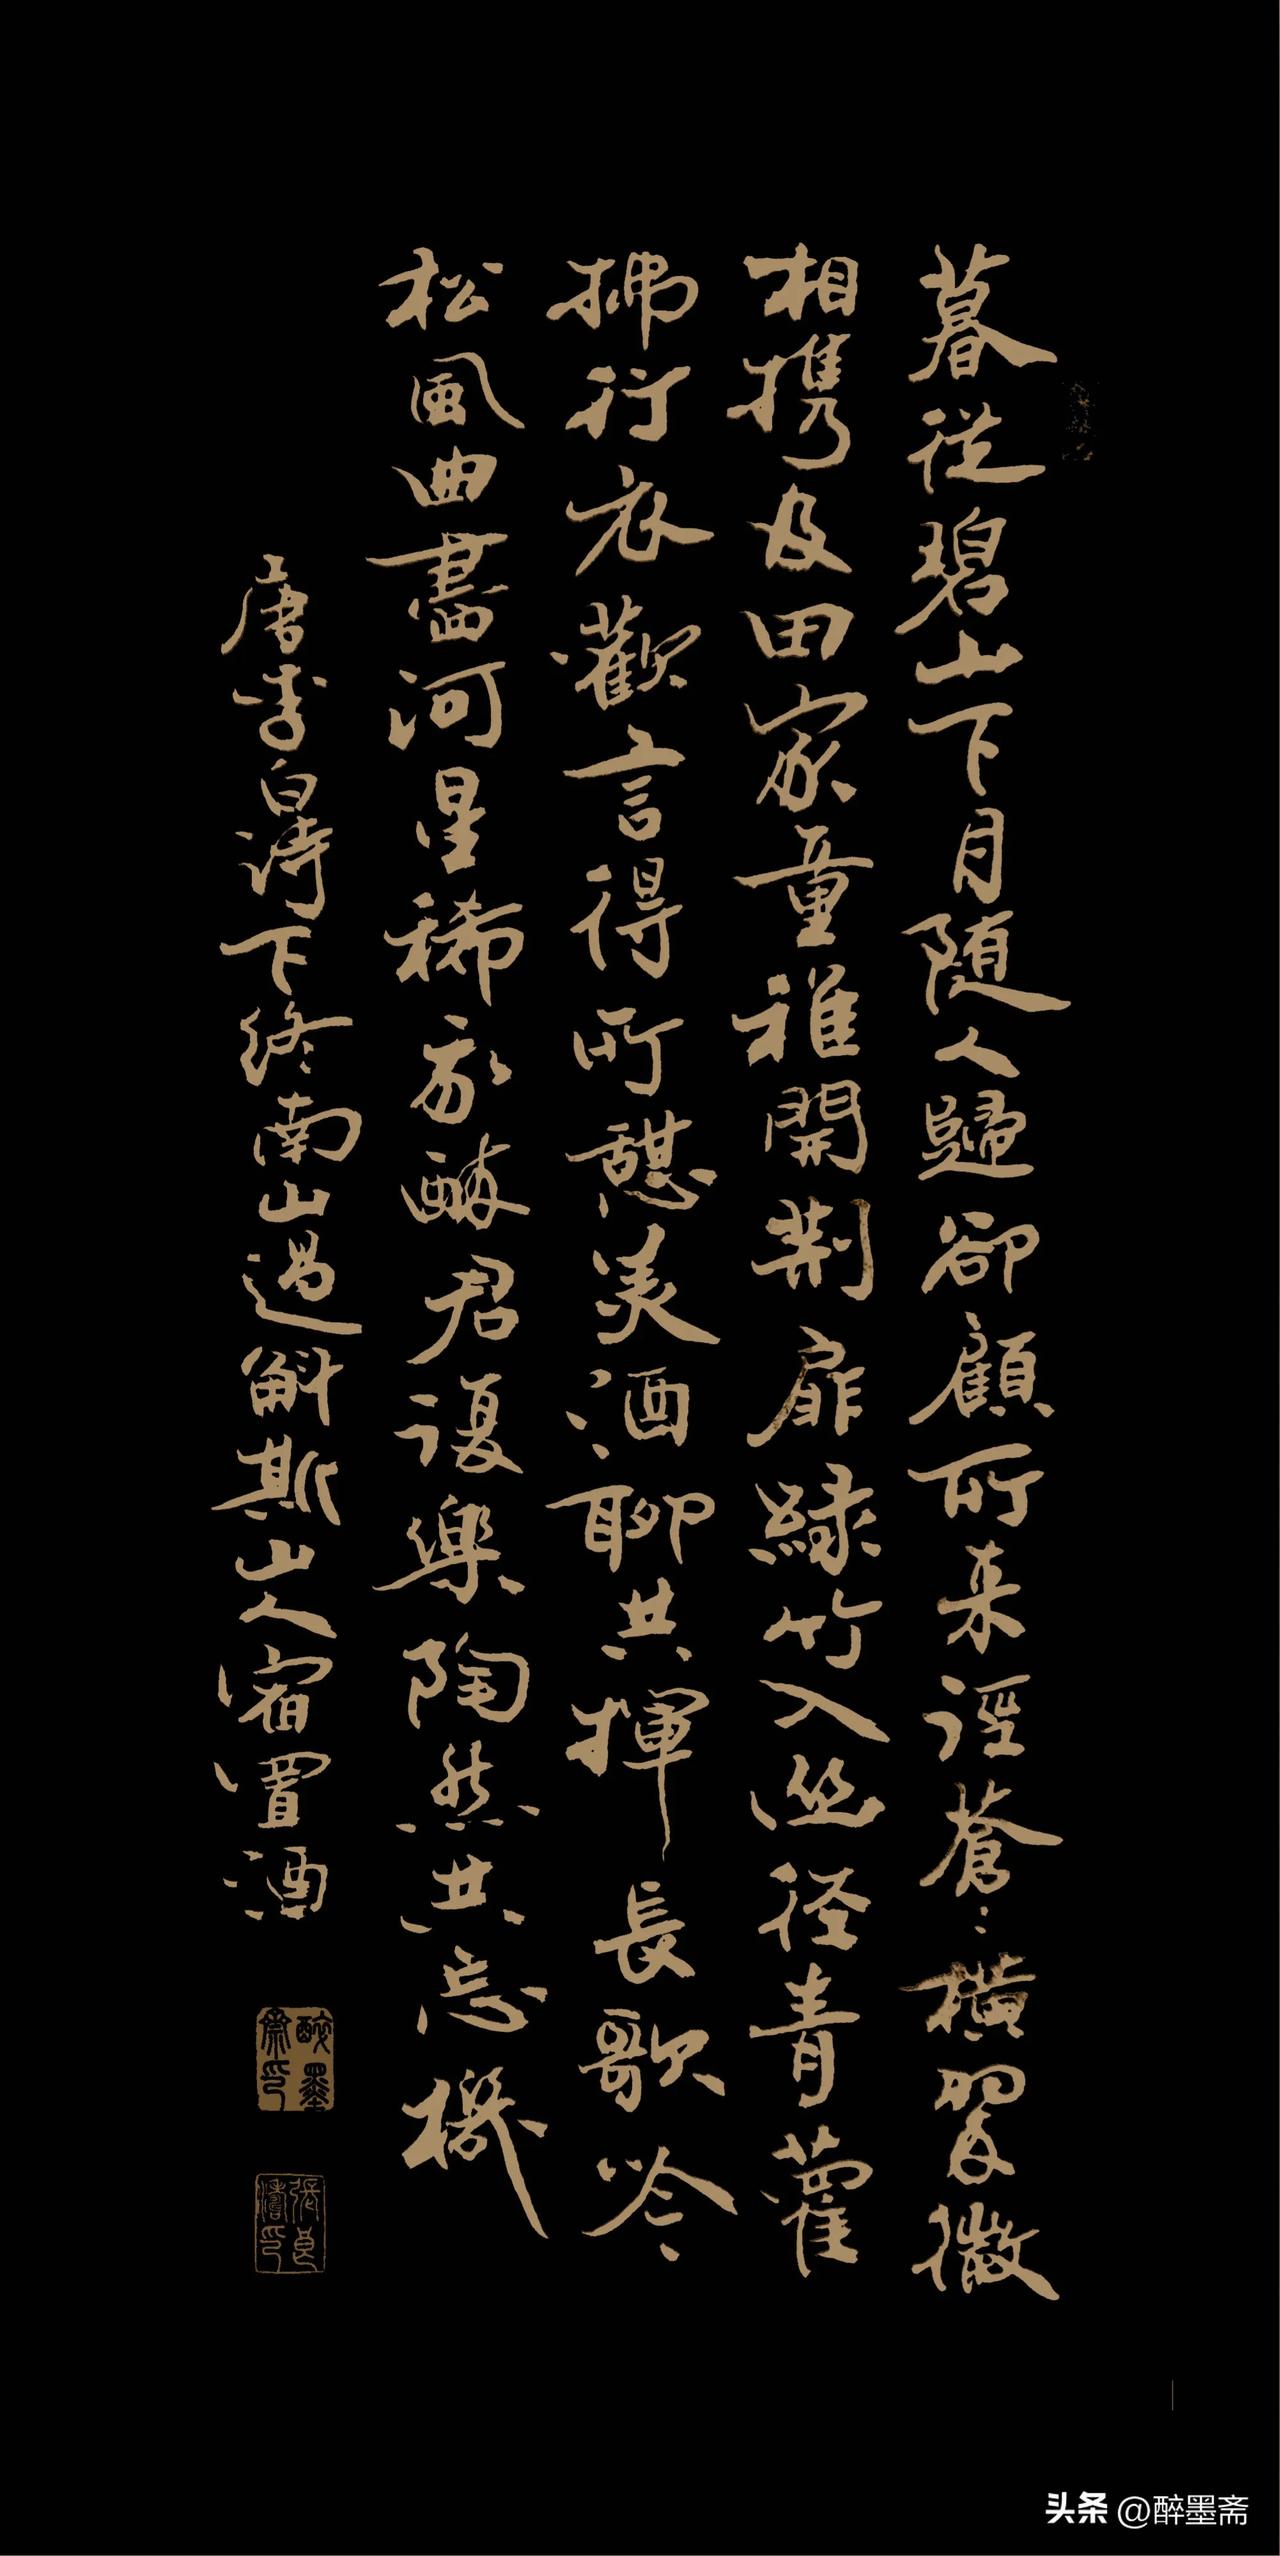 暮從碧山下月随人歸卻顧所来逕蒼〻横翠微
相携及田家童稚開荆扉緑竹入幽径青蘿
拂行衣歡言得所憩美酒聊共揮長歌吟
松風曲盡河星稀我醉君復樂陶然共忘機
唐李白诗下终南山過斛斯山人宿置酒
醉墨齋印
張良濤印
头条 @醉墨斋